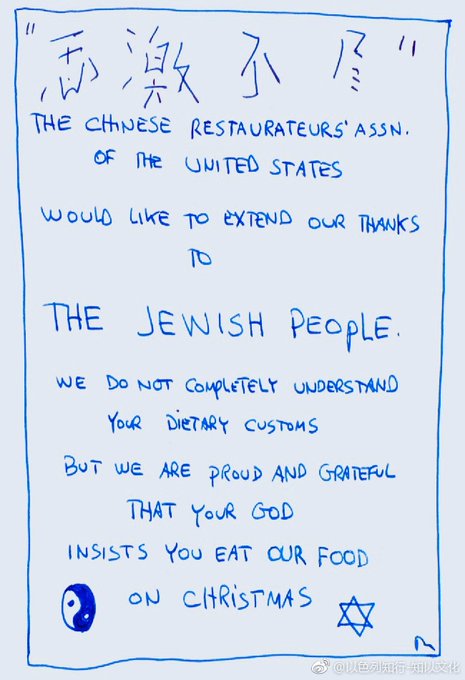 THE CHINESE RESTAURATEURS' ASSN.
OF THE UNITED STATES
WOULD LIKE TO EXTEND OUR THANKS
TO
THE JEWISH PEOPLE.
WE DO NOT COMPLETELY UNDERSTAND
YOUR DIETARY CUSTOMS
BUT WE ARE PROUD AND GRATEFUL
THAT YOUR GOD
INSISTS YOU EAT OUR FOOD
ON CHRISTMAS
@以色列知行-知以文化